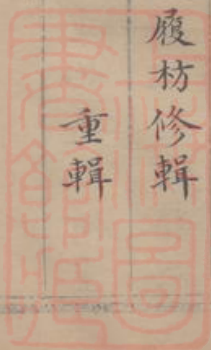 履枋修輯
重輯